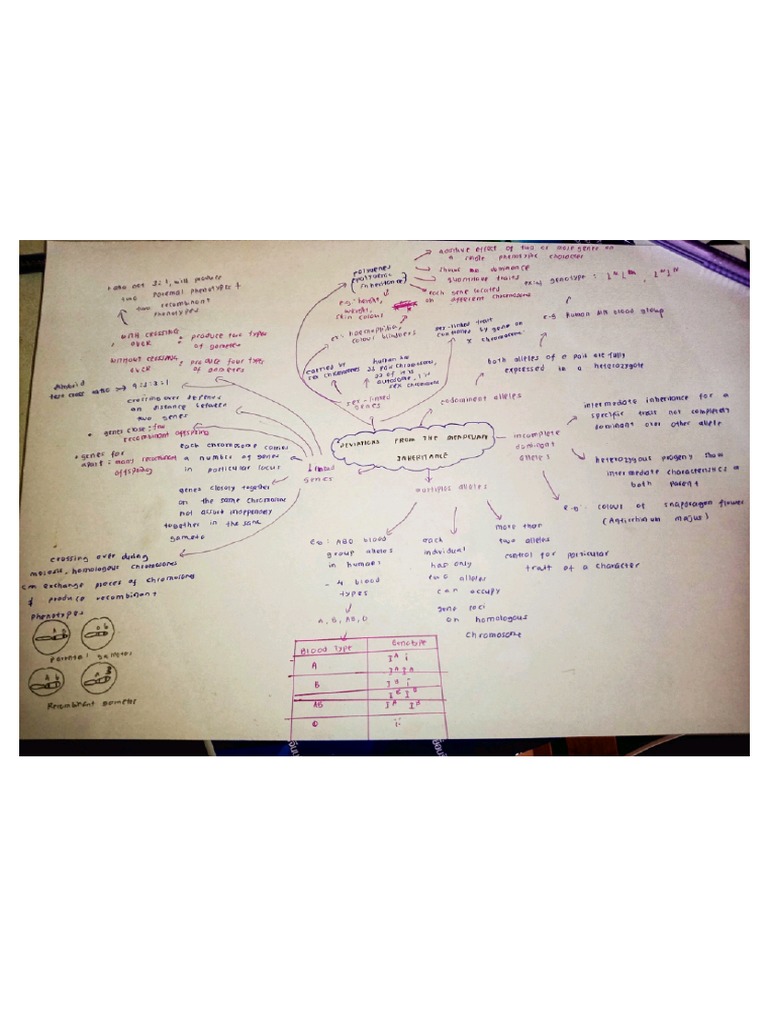 DEVIATIONS FROM THE MENDELIAN
INHERITANCE
polygenes
(polygenic
inheritance)
additive effect of two or more genes on
a single phenotypic character
show no dominance
quantitative traits
each gene located
on different chromosome
eg: height,
weight,
skin colour
codominant alleles
both alleles of a pair are fully
expressed in a heterozygote
eg human MN blood group
genotype :
sex-linked
genes
carried by
sex chromosomes
ex: haemophilia,
colour blindness
sex-linked trait
controlled by gene on
X chromosome
human has
23 pair chromosome,
22 of it is
autosome, 1 is
sex chromosome
incomplete
dominant
allele
intermediate inheritance for a
specific trait not completely
dominant over other allele
heterozygous progeny show
intermediate characteristics of
both parent
e.g. colour of snapdragon flower
(Antirrhinum majus)
multiple alleles
more than
two alleles
control for particular
trait of a character
each
individual
has only
two alleles
can occupy
gene loci
on homologous
chromosome
eg: ABO blood
group alleles
in human
- 4 blood
types
A, B, AB, O
Blood Type Genotype
A I^A i
I^A I^A
B I^B i
I^B I^B
AB I^A I^B
O ii
linked
genes
each chromosome carries
a number of genes
in particular locus
genes closely together
on the same chromosome
not assort independently
together in the same
gamete
crossing over during
meiosis, homologous chromosomes
can exchange pieces of chromosomes
& produce recombinant
phenotypes
Parental gamete
Recombinant gamete
crossing over depends
on distance between
two genes
• genes close : few
recombinant offspring
• genes far
apart : many recombinant
offspring
WITHOUT CROSSING
OVER : produce four types
of gametes
WITH CROSSING
OVER : produce two types
of gametes
two parental phenotypes +
two recombinant
phenotypes